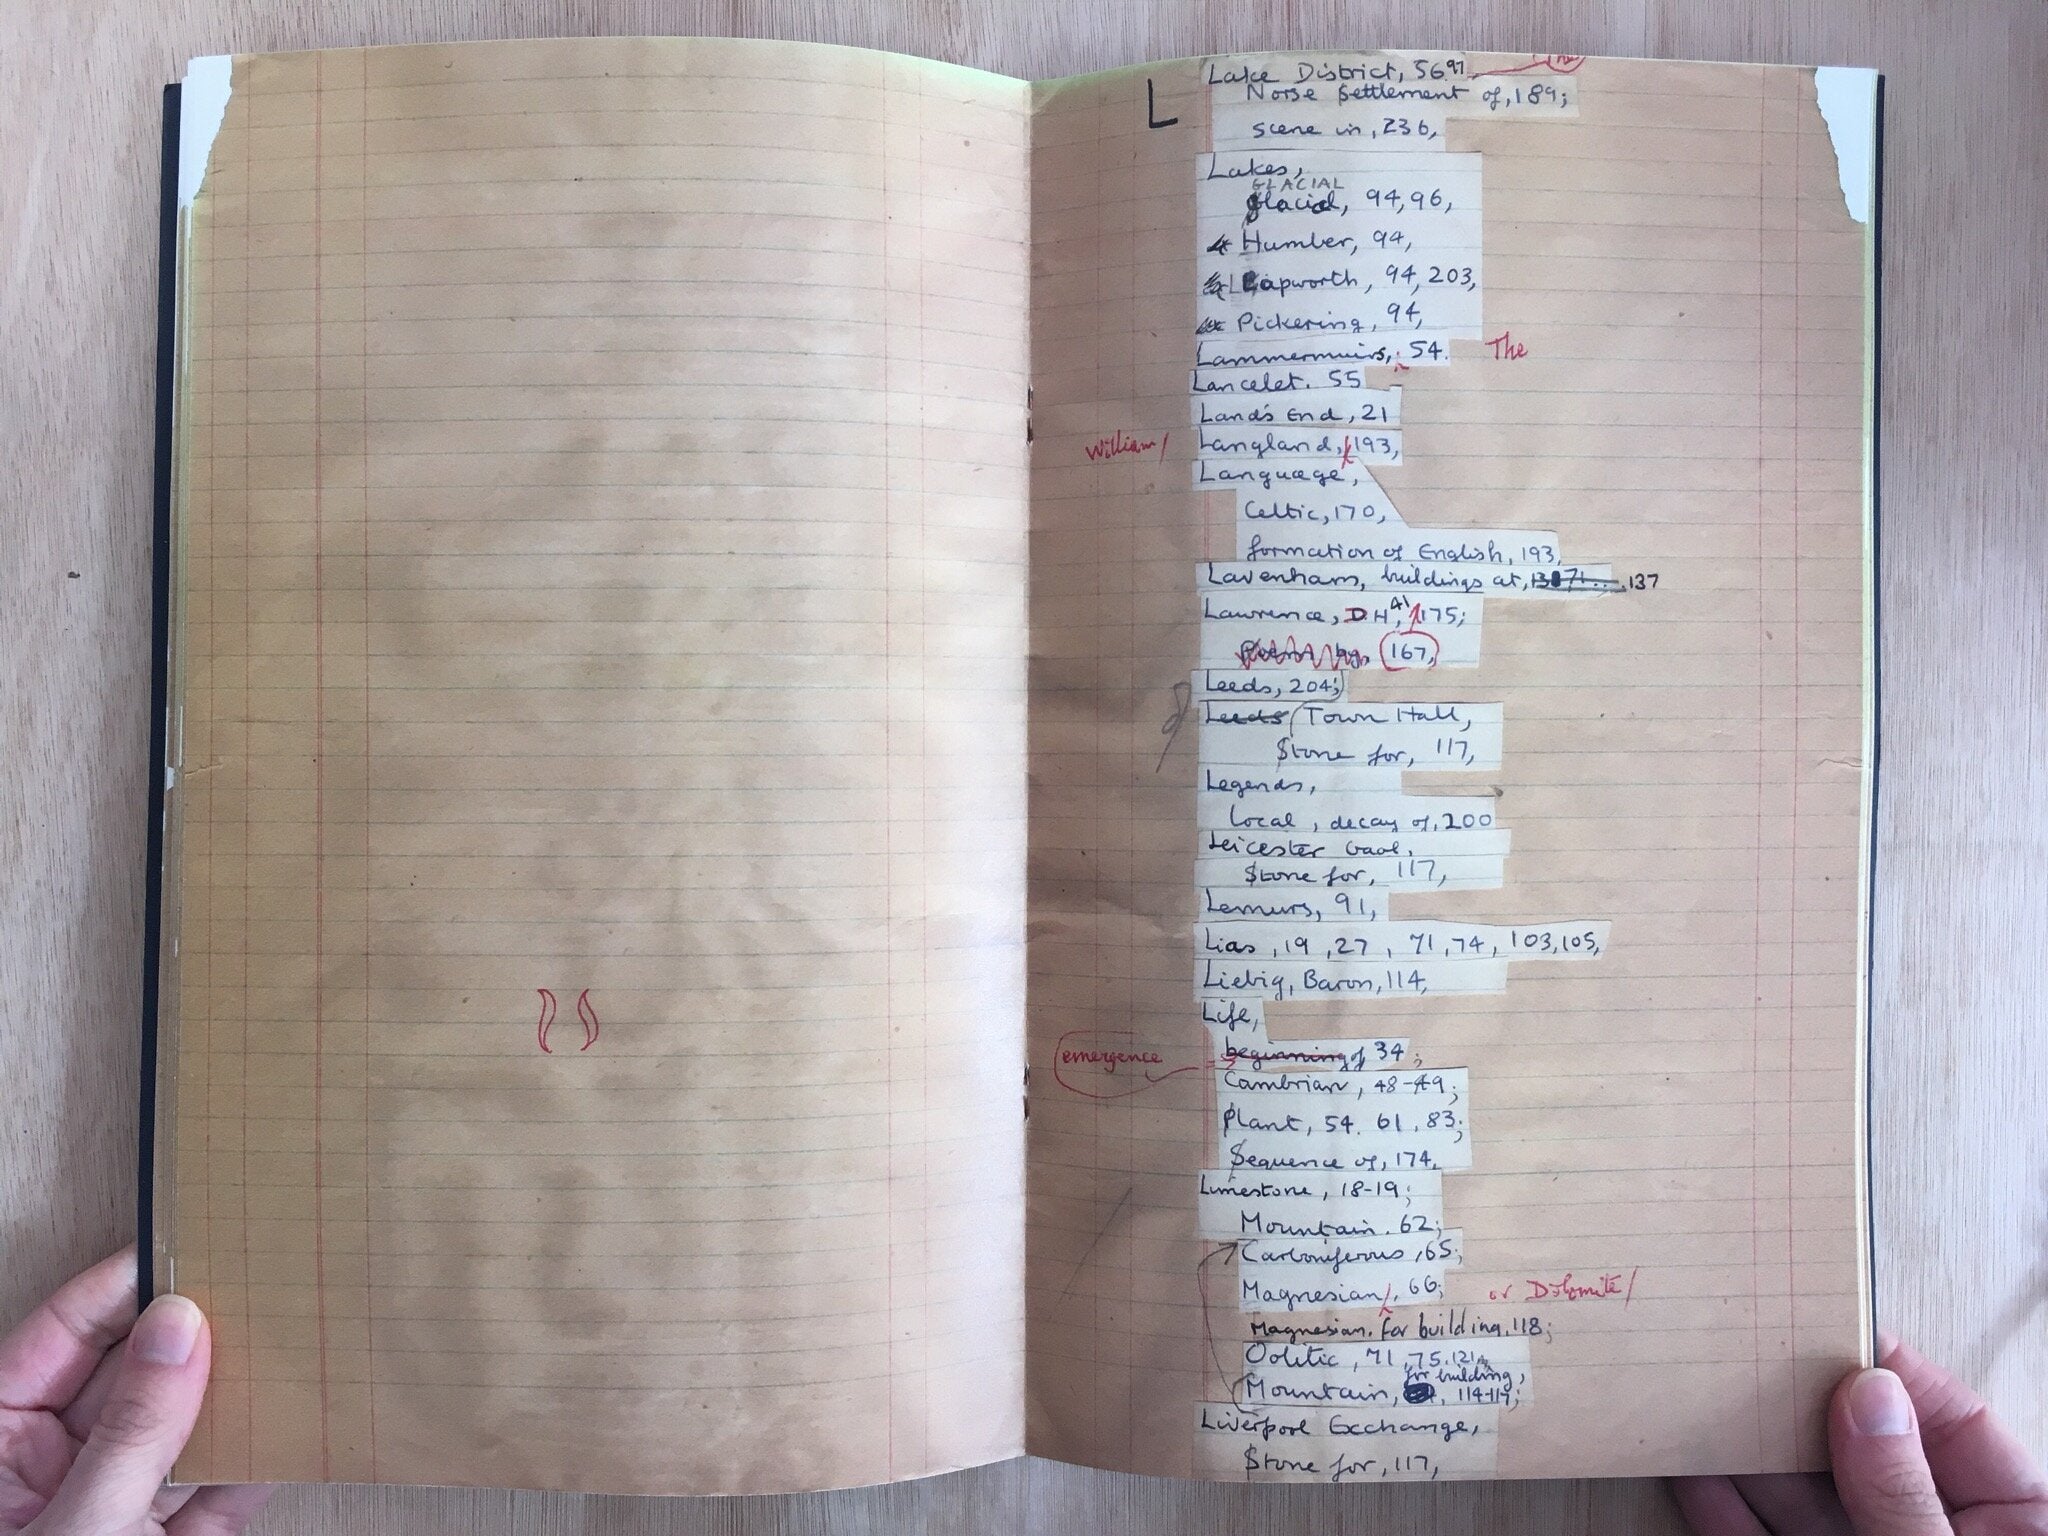 L
Lake District, 56. 97
Norse Settlement of, 189;
scene in, 236,
Lakes,
GLACIAL
glacial, 94, 96,
Humber, 94,
Lapworth, 94, 203,
Pickering, 94,
Lammermuirs, 54. The
Lancelet. 55
Land's End, 21
William/ Langland, 193,
Language,
Celtic, 170,
formation of English, 193,
Lavenham, buildings at, 137
Lawrence, D.H, 41, 175;
Poem by, 167,
Leeds, 204;
Leeds Town Hall,
Stone for, 117,
Legends,
local, decay of, 200
Leicester Gaol,
Stone for, 117,
Lemurs, 91,
Lias, 19, 27, 71, 74, 103, 105,
Liebig, Baron, 114,
Life,
emergence beginning of 34;
Cambrian, 48-49;
Plant, 54. 61, 83;
Sequence of, 174,
Limestone, 18-19;
Mountain. 62;
Carboniferous, 65;
Magnesian, 66; or Dolomite/
Magnesian. for building, 118;
Oolitic, 71, 75. 121,
for building,
Mountain, 114-117;
Liverpool Exchange,
Stone for, 117,